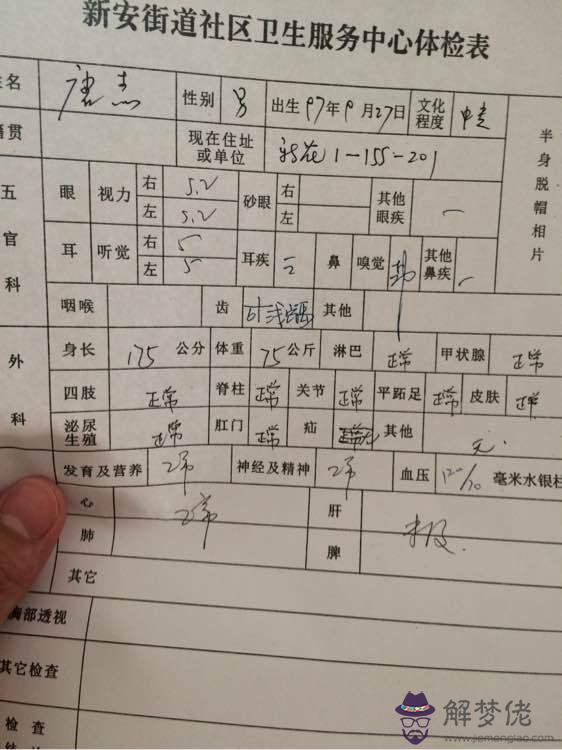 新安街道社区卫生服务中心体检表
姓名 唐杰 性别 男 出生 97年9月27日 文化程度
籍贯 现在住址或单位 1-155-201 半身脱帽相片
五官科 眼 视力 右 5.2 砂眼 右 其他眼疾 —
左 5.2 左
耳 听觉 右 5 耳疾 鼻 嗅觉 其他鼻疾 —
左 5
咽喉 齿 其他
外科 身长 175 公分 体重 75 公斤 淋巴 正常 甲状腺 正常
四肢 正常 脊柱 正常 关节 正常 平跖足 正常 皮肤 正常
泌尿生殖 正常 肛门 正常 疝 其他 无
发育及营养 正常 神经及精神 正常 血压 120/70 毫米水银柱
心 正常 肝 未及
肺 脾
其它
胸部透视
其它检查
检查
解梦佬
www.jiemenglao.com